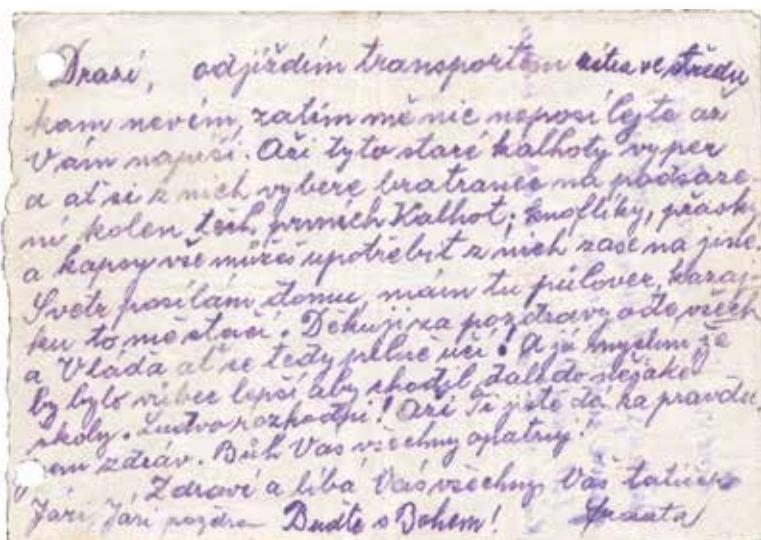 Drazí, odjíždím transportem zítra ve středu
kam nevím, zatím mě nic neposílejte až
Vám napíši. Aťi tyto staré kalhoty vyper
a ať si z nich vybere bratranec na podsaze-
ní kolen těch prvních Kalhot; knoflíky, přasky
a kapsy vše můžeš upotřebit z nich zase na jiné.
Svetr posílám domu, mám tu pulover, kazaj-
ku to mě stačí. Děkuji za pozdravy ode všech
a Vláďa ať se tedy pilně učí! A já myslím že
by bylo vůbec lepší aby chodil dále do nějaké
školy. rozhodni! Ti jistě dá za pravdu.
sem zdráv. Bůh Vás všechny opatruj!
Zdraví a líbá Vás všechny Váš tatínek
Jáři, Jáři Buďte s Bohem!